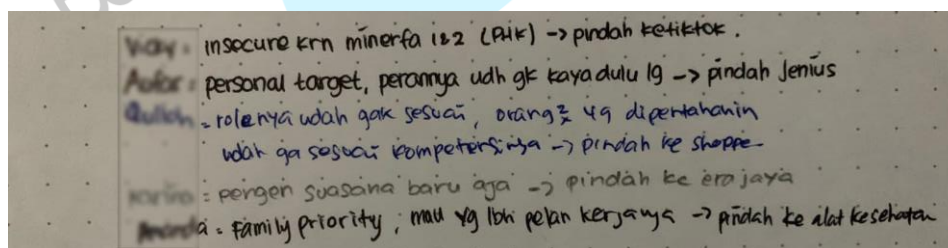 : insecure krn minerfa 1&2 (PHK) -> pindah ketiktok.
: personal target, perannya udh gk kaya dulu lg -> pindah Jenius
= rolenya udah gak sesuai, orang2 yg dipertahanin
udah ga sesuai kompetensinya -> pindah ke shoppe
: pengen suasana baru aja -> pindah ke erajaya
a = Family priority, mau yg lbh pelan kerjanya -> pindah ke alat kesehatan